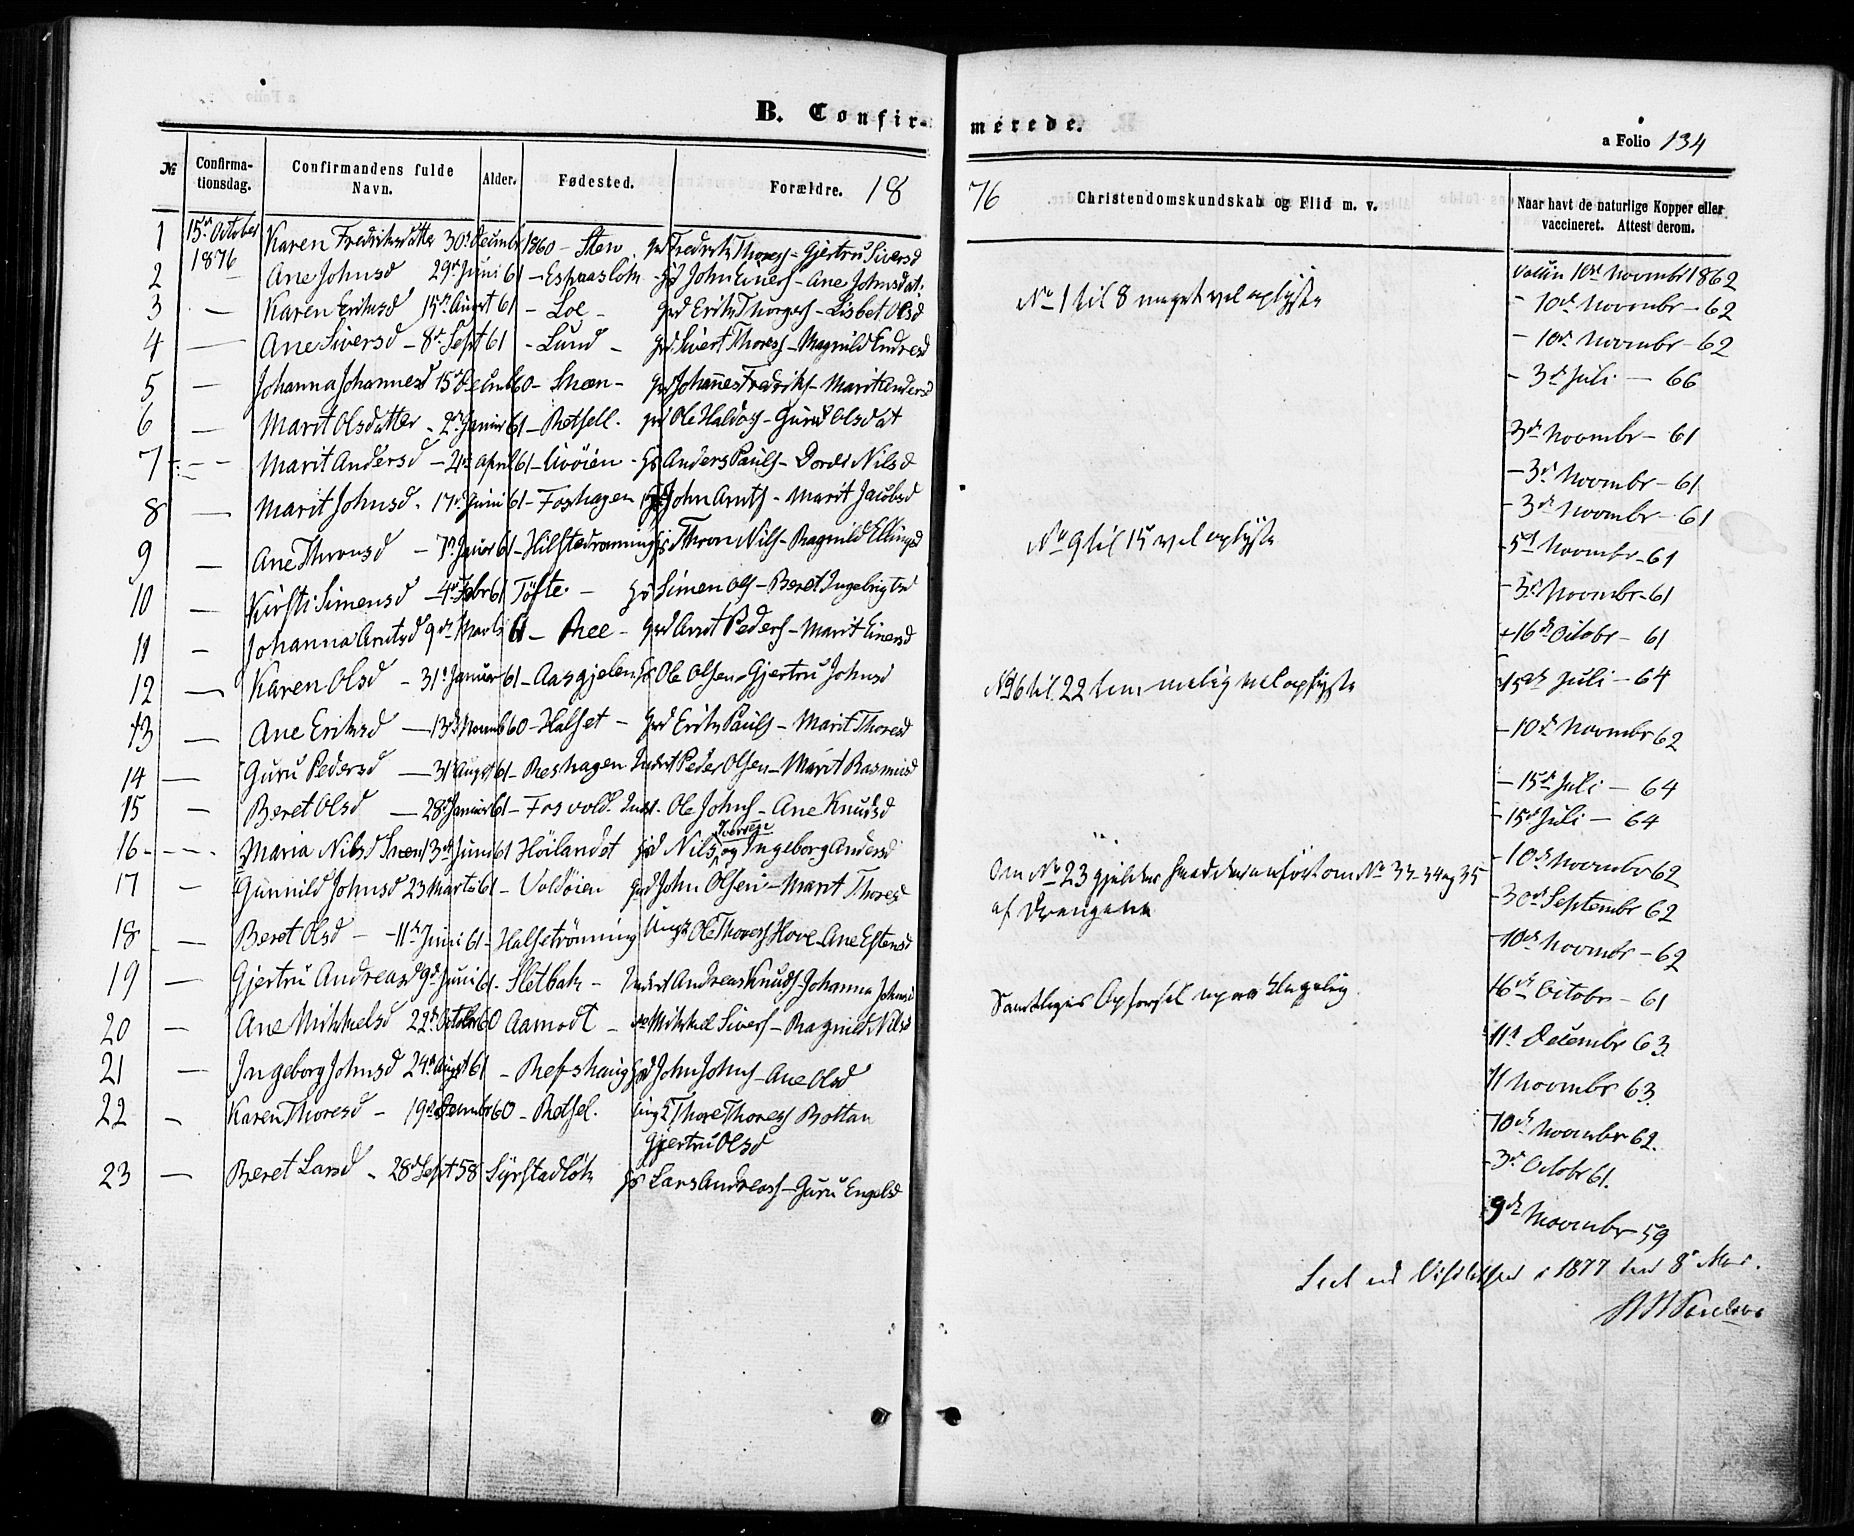 B. Confirmerede.
a Folio 134
№ Confirmationsdag. Confirmandens fulde Navn. Alder. Fødested. Forældre. 1876 Christendomskundskab og Flid m. v. Naar havt de naturlige Kopper eller vaccineret. Attest derom.
1 15de October 1876 Karen Fredriksdatter 30te Decembr 1860 - Sten Fredrik Thoress - Gjertru Siversd
2 Ane Johnsd 29de Juni 61 - John Einers - Ane Johnsdat. vaccin 10de Novembr 1862
3 — Karen Eriksd 15de August 61 - Loe - Erik Thorgers - Lisbet Olsd No 1 til 8 meget vel oplyste - 10de Novembr - 62
4 — Ane Siversd - 8de Sept 61 - Lund - Sivert Thoress - Magnild Endresd - 10de Novembr - 62
5 — Johanna Johannesd 15de Decmb 60 - Snoen - Johannes Fredriks - Marit Andersd - 3de Juli - 66
6 — Marit Olsdatter - 2de Januar 61 - Retsell. Ole Haldos - Guru Olsdat - 3de Novembr - 61
7 — Marit Andersd - 21de April 61 - Anders Pauls - Dordi Nilsd - 3de Novembr - 61
8 — Marit Johnsd - 17de Juni 61 - Foshagen John Arnts - Marit Jacobsd - 3de Novembr - 61
9 — Ane Thronsd - 7de Januar 61 - Thron Nils - Ragnild Ellingsd No 9 til 15 vel oplyste - 5te Novembr - 61
10 — Kirsti Simensd - 4de Febr 61 Töfte - Simen Ols - Beret Ingebrigtsd - 3de Novembr - 61
11 — Johanna Arntsd 9de Marts 61 - Ree - Arnt Peders - Marit Einersd 16de Octobr - 61
12 — Karen Olsd - 31te Januar 61 - Aasgjelen Ole Olsen - Gjertru Johnsd No 16 til 22 temmelig vel oplyste 15de Juli - 64
13 — Ane Eriksd - 13de Novmb 60 - Halset - Erik Pauls - Marit Thoresd - 10de Novembr 62
14 — Guru Pedersd - 31te August 61 - Reshagen Inderst Peder Olsen - Marit Rasmusd - 15de Juli - 64
15 — Beret Olsd - 28de Januar 61 - Fosvold. Inderst. Ole Johns - Ane Knudsd - 15de Juli - 64
16 - - - Maria Nilsd Snoen 13de Juni 61 Höilandet Nils og Ingeborg Andersd - 10de Novembr 62
17 — Gunnild Johnsd 23 Marts 61 - Voldöien John Olsen - Marit Thoresd Om No 23 gjelder hvad der er anført om No 33-34 og 35 af Drengene - 30te Septembr 62
18 — Beret Olsd - 11te Juni 61 - Halsetrönning Ungk Ole Thoress Hove - Ane Estensd - 10de Novembr - 62
19 — Gjertru Andreasd 9de Juni 61 - Sletbak - Inderst Andreas Knuds - Johanna Johnsd Samtliges Opførsel upaaklagelig. 16de Octobr - 61
20 — Ane Mikkelsd 22de October 60 Aamodt - Mikkel Sivers - Ragnild Nilsd 11te Decembr 63.
21 — Ingeborg Johnsd 24de August 61 - Refshaug John Johns - Ane Olsd 11 Novembr 63.
22 — Karen Thoresd - 19de Decmbr 60 - Retsel. Ungk Thore Thoress Boltan Gjertru Olsd 10de Novembr 62.
23 — Beret Larsd - 28de Sept 58 Syrstadlök Lars Andreass - Guru Engelsd - 3de Octobr 61.
9de Novembr - 59
Seet ved Visitatsen i 1877 den 8de Mai.